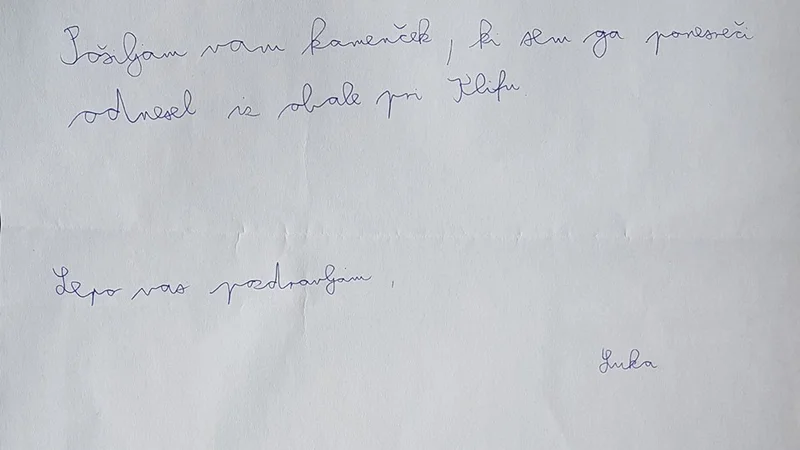 Pošiljam vam kamenček, ki sem ga ponesreči
odnesel iz obale pri Klifu.
Lepo vas pozdravljam,
Luka